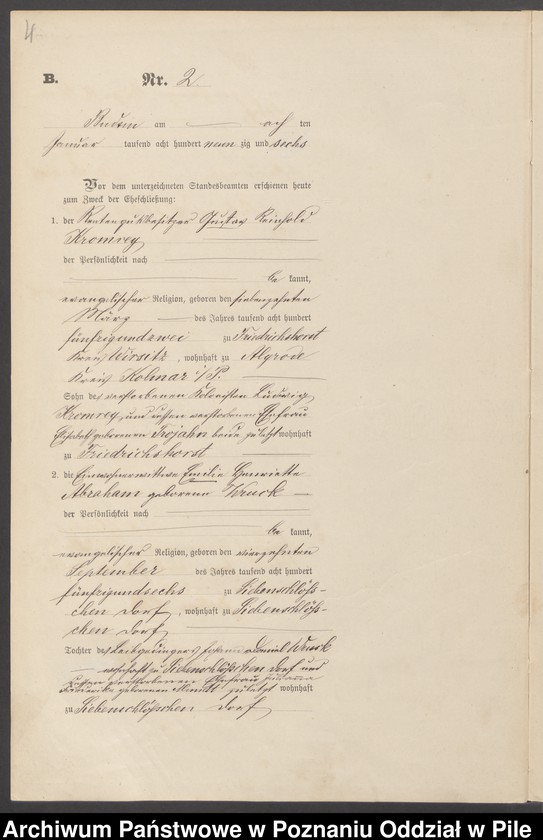 4
B. Nr. 2.
am acht ten
Januar tausend acht hundert neun zig und sechs
Vor dem unterzeichneten Standesbeamten erschienen heute
zum Zweck der Eheschließung:
1. der Rentengutsbesitzer Gustav Reinhold
Kromrey
der Persönlichkeit nach
be kannt,
evangelischer Religion, geboren den siebenzehnten
März des Jahres tausend acht hundert
fünfzigundzwei zu Friedrichshorst
Kreis Wirsitz, wohnhaft zu Alyrode
Kreis Kolmar i/P.
Sohn des verstorbenen Kolonisten Ludwig
Kromrey, und dessen verstorbenen Ehefrau
geborenen Trojahn beide zuletzt wohnhaft
zu Friedrichshorst
2. die Einwohnerwittwe Emilie Henriette
Abraham geborene Wruck
der Persönlichkeit nach
be kannt,
evangelischer Religion, geboren den vierzehnten
September des Jahres tausend acht hundert
fünfzigundsechs zu Siebenschlöß-
chen Dorf, wohnhaft zu Siebenschlöß-
chen Dorf
Tochter des Leibgedingers Johann Daniel Wruck
wohnhaft zu Siebenschlösschen Dorf und
dessen verstorbenen Ehefrau
geborenen zuletzt wohnhaft
zu Siebenschlösschen Dorf
Archiwum Państwowe w Poznaniu Oddział w Pile